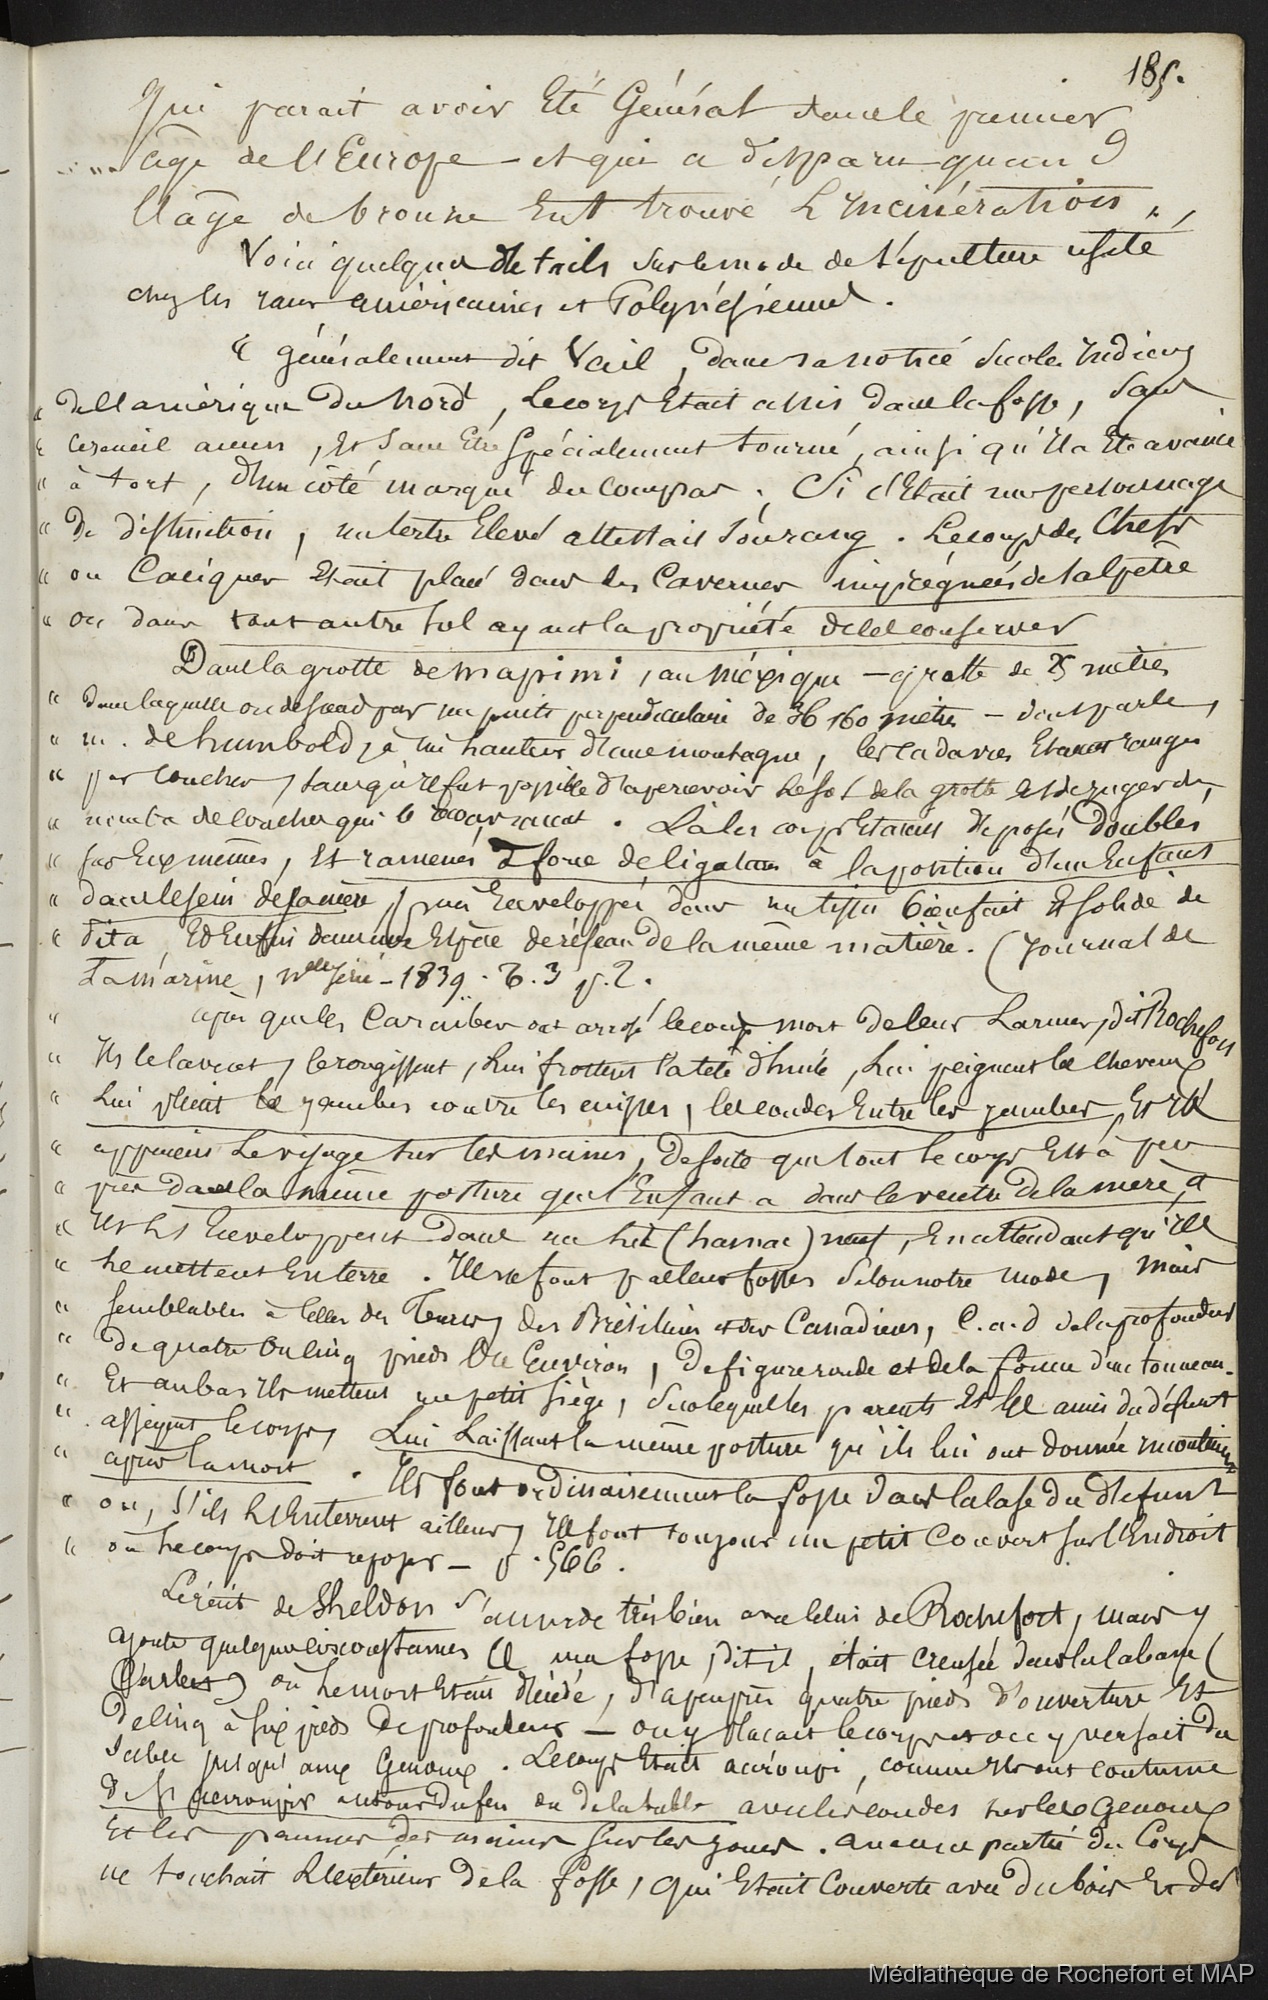 185.
qui parait avoir Eté Général dans le premier
âge de l'Europe - et qui a disparu quand
l'âge de bronze Eut trouvé L'incinération „
Voici quelques détails sur le mode de sépulture usité
chez les races américaines et Polynésiennes.
« généralement dit Vail, dans sa notice sur les Indiens
« de l'amérique du Nord, le corps Etait assis dans la fosse, sans
« cercueil aucun, Et sans Etre Spécialement tourné, ainsi qu'il a Eté avancé
« à tort, d'un côté marqué du compas. Si c'Etait un personnage
« de distinction, un tertre Elevé attestait son rang. Le corps des Chefs
« ou Caciques Etait placé dans des Cavernes imprégnées de salpêtre
« ou dans tout autre sol ayant la propriété de le conserver
Dans la grotte de mapimi, au Méxique - grotte de 25 mètres
« dans laquelle on descend par un puits perpendiculaire de 160 mètres - dont parle,
« m. de humbold, à mi hauteur d'une montagne, les cadavres Etaient rangés
« par couches, sans qu'il fut possible d'apercevoir le sol de la grotte et de juger du
« nombre de couches qui le recouvraient. Là les corps Etaient déposés doublés
« sur Eux mêmes, Et ramenés à force de ligatures à la position d'un Enfant
« dans le sein de sa mère, puis Enveloppés dans un tissu bien fait Et solide de
« pita, Et Enfin dans une Espèce de réseau de la même matière. (Journal de
La marine, nlle Série - 1839. T. 3 p. 2.
« après que les Caraïbes ont arrosé le corps mort de leurs Larmes, dit Rochefort
« Ils le lavent, le rougissent, lui frottent la tête d'huile, Lui peignent les cheveux
« Lui plient les jambes contre les cuisses, les coudes Entre les jambes, Et ils
« appuient le visage sur les mains, de sorte que tout le corps Est à peu
« près dans la même posture que l'Enfant a dans le ventre de la mère, et
« Ils les Enveloppent dans un lit (hamac) neuf, En attendant qu'ils
« le mettent En terre. Ils ne font pas leurs fosses selon notre mode, mais
« semblables à celles des Turcs, des Brésiliens et des Canadiens, C.a.d de la profondeur
« de quatre ou cinq pieds Ou Environ, de figure ronde et de la forme d'un tonneau.
« Et au bas Ils mettent un petit siège, sur lequel les parents Et les amis du défunt
« asseyent le corps, Lui Laissant la même posture qu'ils lui ont donnée incontinent
« après la mort. Ils font ordinairement la fosse dans la case du défunt
« ou, s'ils L'Enterrent ailleurs, Ils font toujours un petit Couvert sur l'Endroit
« où le corps doit reposer - p. 566.
Le récit de Sheldon s'accorde très bien avec celui de Rochefort, mais y
ajoute quelques circonstances « une fosse, dit il, était creusée dans la cabane (
Carbet) où le mort Etait décédé, d'à peu près quatre pieds d'ouverture Et
de cinq à six pieds de profondeur - on y plaçait le corps et on y versait du
sable jusqu'aux Genoux. Le corps Etait accroupi, comme Ils ont coutume
de s'accroupir autour du feu ou de la table avec les coudes sur les Genoux
Et les paumes des mains sur les joues. aucune partie du Corps
ne touchait L'extérieur de la fosse, qui Etait Couverte avec du bois Et des
Médiathèque de Rochefort et MAP